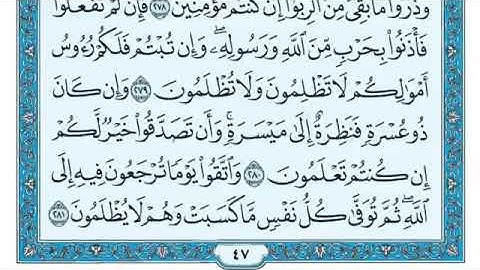 وَذَرُوا۟ مَا بَقِىَ مِنَ ٱلرِّبَوٰٓا۟ إِن كُنتُم مُّؤْمِنِينَ ٢٧٨ فَإِن لَّمْ تَفْعَلُوا۟
فَأْذَنُوا۟ بِحَرْبٍ مِّنَ ٱللَّهِ وَرَسُولِهِۦ وَإِن تُبْتُمْ فَلَكُمْ رُءُوسُ
أَمْوَٰلِكُمْ لَا تَظْلِمُونَ وَلَا تُظْلَمُونَ ٢٧٩ وَإِن كَانَ
ذُو عُسْرَةٍ فَنَظِرَةٌ إِلَىٰ مَيْسَرَةٍ ۚ وَأَن تَصَدَّقُوا۟ خَيْرٌ لَّكُمْ
إِن كُنتُمْ تَعْلَمُونَ ٢٨٠ وَٱتَّقُوا۟ يَوْمًا تُرْجَعُونَ فِيهِ إِلَى
ٱللَّهِ ۖ ثُمَّ تُوَفَّىٰ كُلُّ نَفْسٍ مَّا كَسَبَتْ وَهُمْ لَا يُظْلَمُونَ ٢٨١
٤٧